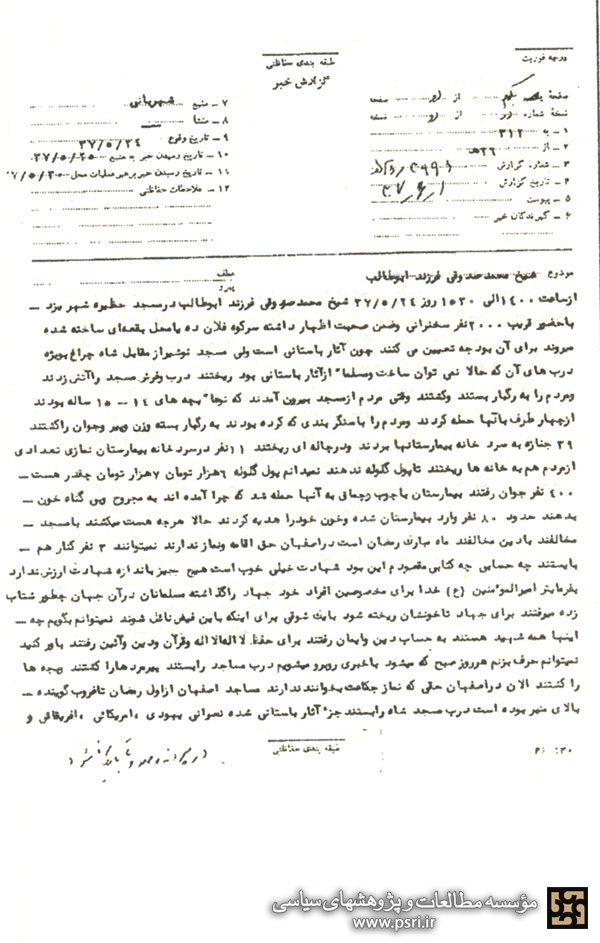 درجه فوریت
طبقه بندی حفاظتی
گزارش خبر
صفحه یکم از صفحه
نسخه شماره از نسخه
۱ - به ۳۱۲
۲ - از ۲۶ ه‍
۳ - شماره گزارش
۴ - تاریخ گزارش ۳۷/۶/۱
۵ - پیوست
۶ - گیرندگان خبر
۷ - منبع شهربانی
۸ - منشا
۹ - تاریخ وقوع ۳۷/۵/۲۴
۱۰ - تاریخ رسیدن خبر به منبع ۳۷/۵/۲۵
۱۱ - تاریخ رسیدن خبر برهبر عملیات محل ۳۷/۵/۳۰
۱۲ - ملاحظات حفاظتی
موضوع شیخ محمد صدوقی فرزند ابوطالب
عطف
پیرو
ازساعت ۱۴۰۰ الی ۱۵۳۰ روز ۳۷/۵/۲۴ شیخ محمد صدوقی فرزند ابوطالب در مسجد حظیره شهر یزد –
باحضور قریب ۲۰۰۰ نفر سخنرانی وضمن صحبت اظهار داشته سرکوه فلان ده یامحل بقعه‌ای ساخته شده
میروند برای آن بودجه تعیین می کنند چون آثار باستانی است ولی مسجد نو شیراز مقابل شاه چراغ بویژه
درب های آن که حالا نمی توان ساخت ومسلما" ازآثار باستانی بود ریختند درب وفرش مسجد راآتش زدند
ومردم را به رگبار بستند وکشتند وقتی مردم ازمسجد بیرون آمدند که نوها" بچه های ۱۴ – ۱۵ ساله بودند
ازچهار طرف باآنها حمله کردند ومردم را باسنگر بندی که کرده بودند به رگبار بسته وزن وپیر وجوان راکشتند
۳۹ جنازه به سرد خانه بیمارستانها بردند ودرچاله ای ریختند ۱۱ نفر درسرد خانه بیمارستان نمازی تعدادی
ازمردم هم به خانه ها ریختند تاپول گلوله ندهند نمیدانم پول گلوله ۶هزار تومان ۷هزار تومان چقدر هست –
۴۰۰ نفر جوان رفتند بیمارستان باچوب وچماق به آنها حمله شد که چرا آمده اند به مجروح وبی گناه خون –
بدهند حدود ۸۰ نفر وارد بیمارستان شده وخون خودرا هدیه کردند حالا هرچه هست میکشند بامسجد –
مخالفند بادین مخالفند ماه مبارک رمضان است دراصفهان حق اقامه ونماز ندارند نمیتوانند ۳ نفر کنار هم –
بایستند چه حسابی چه کتابی مقصودم این بود شهادت خیلی خوب است هیچ چیز باندازه شهادت ارزش ندارد
بفرمایش امیرالمؤمنین (ع) خدا برای مخصوصین افراد خود جهاد راگذاشته مسلمانان درآن جهان چطور شتاب
زده میرفتند برای جهاد تاخونشان ریخته شود بایک شوقی برای اینکه باین فیض نائل شوند نمیتوانم بگویم چه –
اینها همه شهید هستند به حساب دین وایمان رفتند برای حفظ لااله‌الا اله وقرآن ودین وآئین رفتند باور کنید
نمیتوانم حرف بزنم هرروز صبح که میشود باخبری روبرو میشویم درب مساجد رابستند پیرمردهارا کشتند وبچه ها
را کشتند الان دراصفهان حتی که نماز جماعت بخوانند ندارند مساجد اصفهان ازاول رمضان تاغروب گوینده –
بالای منبر بوده است درب مسجد شاه رابستند جزء آثار باستانی شده نصرانی یهودی ، امریکائی ، افریقائی و
طبقه بندی حفاظتی
۳۰ : ۴۶
مؤسسه مطالعات و پژوهشهای سیاسی
www.psri.ir